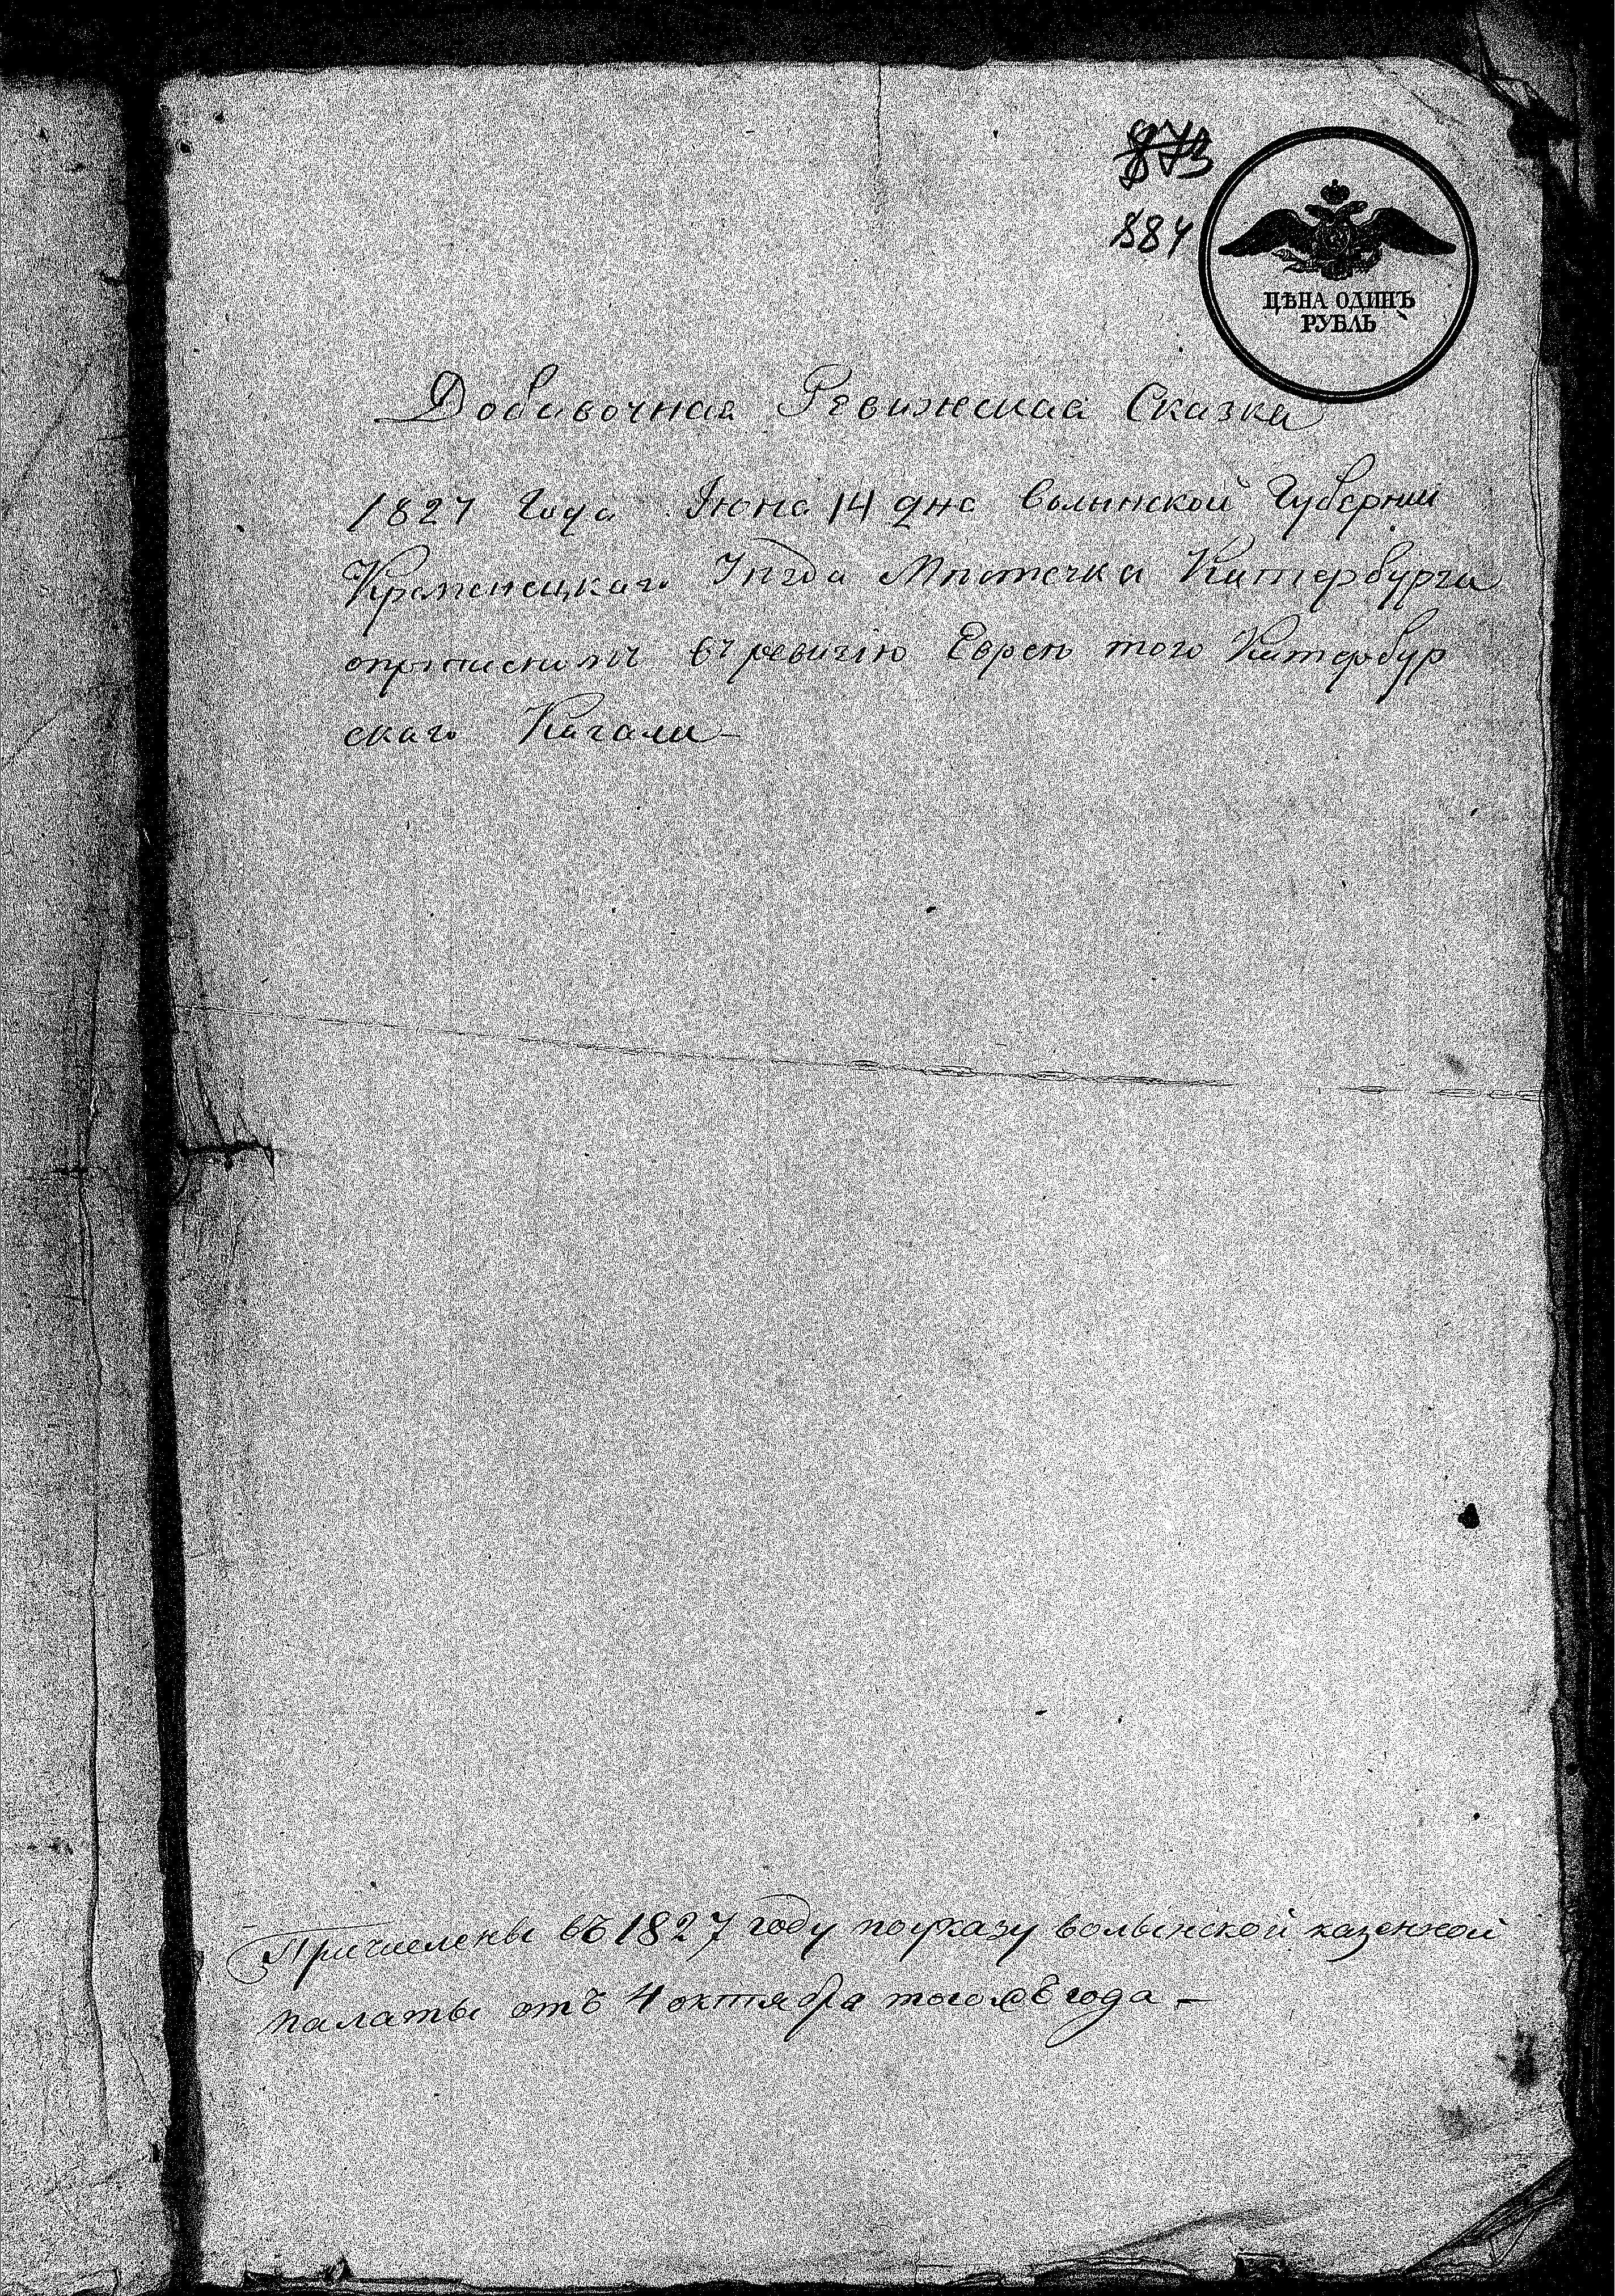 873
884
ЦѢНА ОДИНЪ
РУБЛЬ
Добавочная Ревижская Сказка
1827 Года Июня 14 дня Волынской Губернии
Кременецкаго Уѣзда Мѣстечка Катербурга
въ ревизію Еврея того Катербур
скаго Кагала
Причислены въ 1827 году по указу волынской казенной
палаты отъ 4 октября того же года